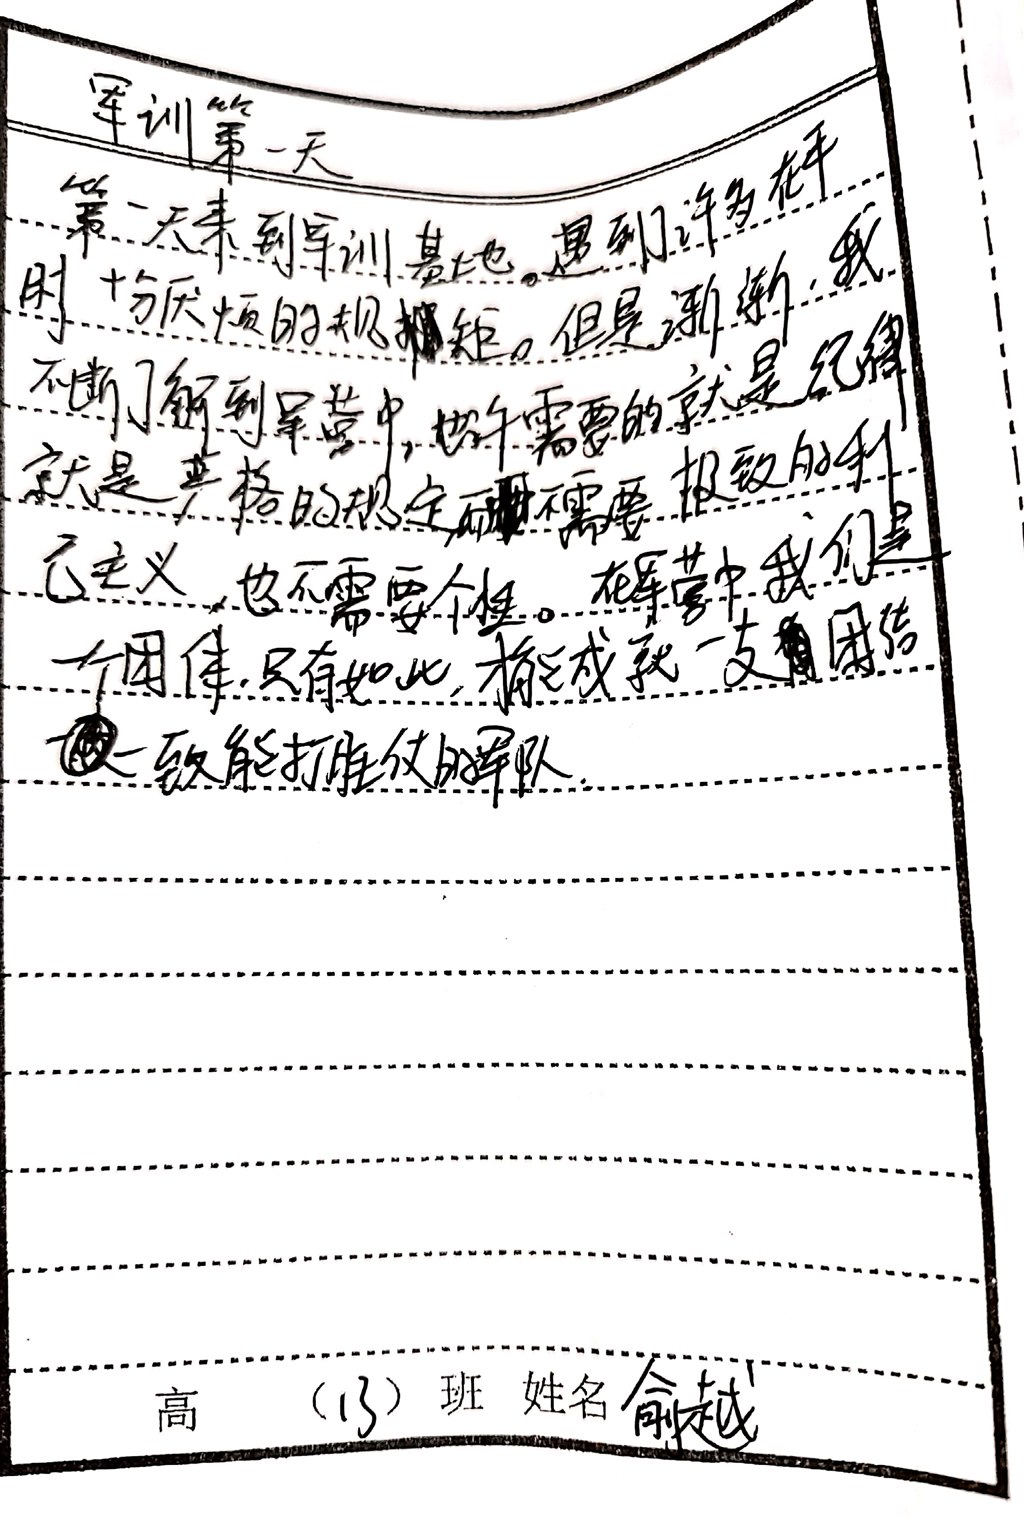 军训第一天
第一天来到军训基地。遇到了许多在平
时十分厌烦的规矩。但是渐渐,我
不断了解到军营中,也许需要的就是纪律
就是严格的规定而不需要极致的利
己主义,也不需要个性。在军营中我们是
一个团体.只有如此,才能成就一支团结
一致能打胜仗的军队.
高 (13) 班 姓名 俞越